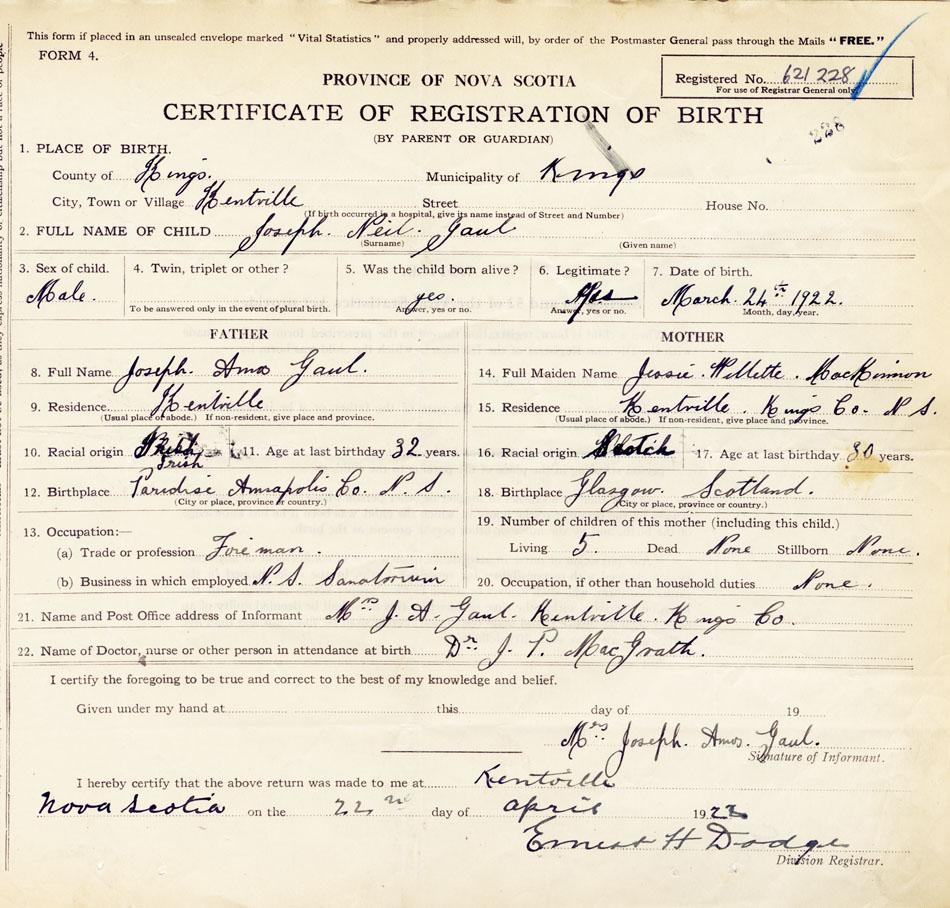 This form if placed in an unsealed envelope marked "Vital Statistics" and properly addressed will, by order of the Postmaster General pass through the Mails "FREE."
FORM 4.
Registered No. 621228
For use of Registrar General only
PROVINCE OF NOVA SCOTIA
CERTIFICATE OF REGISTRATION OF BIRTH
228
(BY PARENT OR GUARDIAN)
1. PLACE OF BIRTH.
County of Kings. Municipality of Kings
City, Town or Village Kentville Street House No.
(If birth occurred in a hospital, give its name instead of Street and Number)
2. FULL NAME OF CHILD Joseph. Neil. Gaul
(Surname) (Given name)
3. Sex of child. 4. Twin, triplet or other? 5. Was the child born alive? 6. Legitimate? 7. Date of birth.
Male. yes. Yes March. 24th 1922.
To be answered only in the event of plural birth. Answer, yes or no. Answer, yes or no. Month, day, year.
FATHER MOTHER
8. Full Name Joseph. Amos Gaul. 14. Full Maiden Name Jessie. Willette. MacKinnon
9. Residence Kentville 15. Residence Kentville. Kings Co. N S.
(Usual place of abode.) If non-resident, give place and province. (Usual place of abode.) If non-resident, give place and province.
10. Racial origin Irish 11. Age at last birthday 32 years. 16. Racial origin Scotch 17. Age at last birthday 30 years.
12. Birthplace Paradise Annapolis Co. N. S. 18. Birthplace Glasgow. Scotland.
(City or place, province or country.) (City or place, province or country.)
13. Occupation:— 19. Number of children of this mother (including this child.)
(a) Trade or profession Foreman. Living 5. Dead None Stillborn None.
(b) Business in which employed N. S. Sanatorium 20. Occupation, if other than household duties None.
21. Name and Post Office address of Informant Mrs J. A. Gaul. Kentville. Kings Co.
22. Name of Doctor, nurse or other person in attendance at birth Dr. J. P. MacGrath.
I certify the foregoing to be true and correct to the best of my knowledge and belief.
Given under my hand at this day of 19
Mrs. Joseph. Amos. Gaul.
Signature of Informant.
I hereby certify that the above return was made to me at Kentville
Nova Scotia on the 22nd day of April 1922
Ernest H Dodge
Division Registrar.